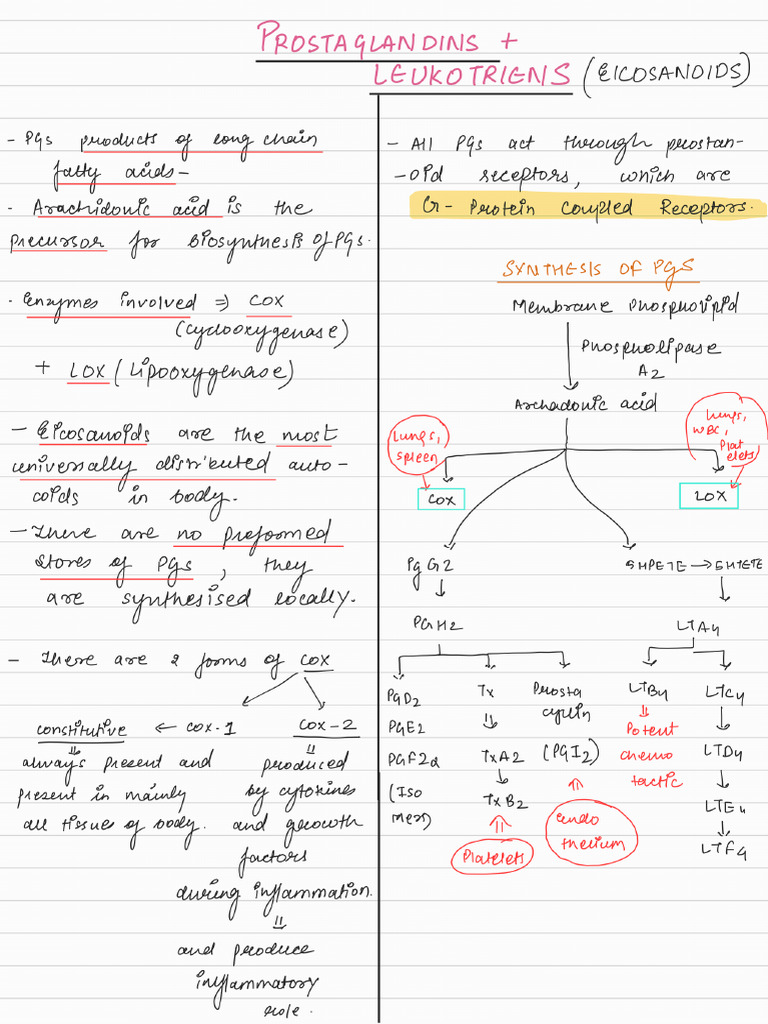 PROSTAGLANDINS +
LEUKOTRIENS (EICOSANOIDS)
- PGs products of long chain
fatty acids-
- Arachidonic acid is the
precursor for biosynthesis of PGs.
- Enzymes involved ⇒ COX
(cyclooxygenase)
+ LOX (Lipooxygenase)
- Eicosanoids are the most
universally distributed auto-
coids in body.
- There are no preformed
stores of PGs, they
are synthesised locally.
- There are 2 forms of COX
constitutive ← COX-1
COX-2
always present and
present in mainly
all tissues of body.
produced
by cytokines
and growth
factors
during inflammation.
and produce
inflammatory
role.
- All PGs act through prostan-
-oid receptors, which are
G- Protein Coupled Receptors.
SYNTHESIS OF PGS
Membrane phospholipid
Phospholipase
A2
Archadonic acid
Lungs,
spleen
COX
Lungs,
WBC,
Plat
elets
LOX
PgG2
5HPETE → 5HTETE
PGH2
LTA4
PGD2
PGE2
PGF2α
(Iso
mers)
Tx
TxA2
TxB2
Platelets
Prosta
cyclin
(PGI2)
endo
thelium
LTB4
Potent
chemo
tactic
LTC4
LTD4
LTE4
LTF4